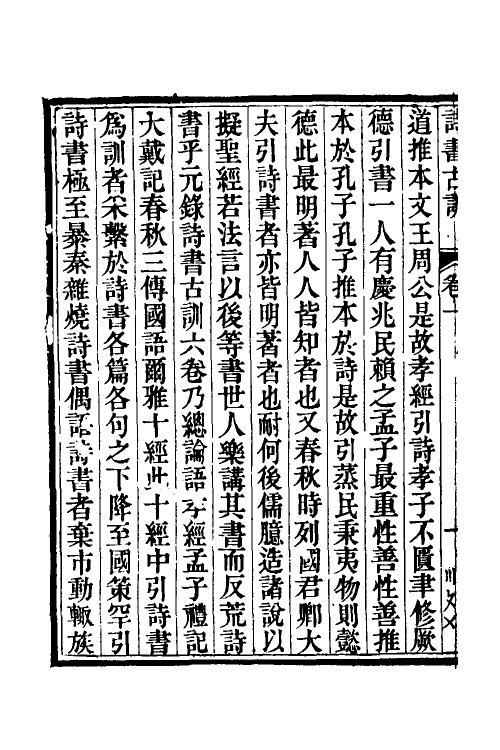 詩書古訓
卷一
道推本文王周公是故孝經引詩孝子不匱聿修厥
德引書一人有慶兆民賴之孟子最重性善性善推
本於孔子孔子推本於詩是故引蒸民秉夷物則懿
德此最明著人人皆知者也又春秋時列國君卿大
夫引詩書者亦皆明著者也耐何後儒臆造諸說以
擬聖經若法言以後等書世人樂講其書而反荒詩
書乎元錄詩書古訓六卷乃總論語孝經孟子禮記
大戴記春秋三傳國語爾雅十經此十經中引詩書
爲訓者采繫於詩書各篇各句之下降至國策罕引
詩書極至暴秦雜燒詩書偶語詩書者棄市動輒族